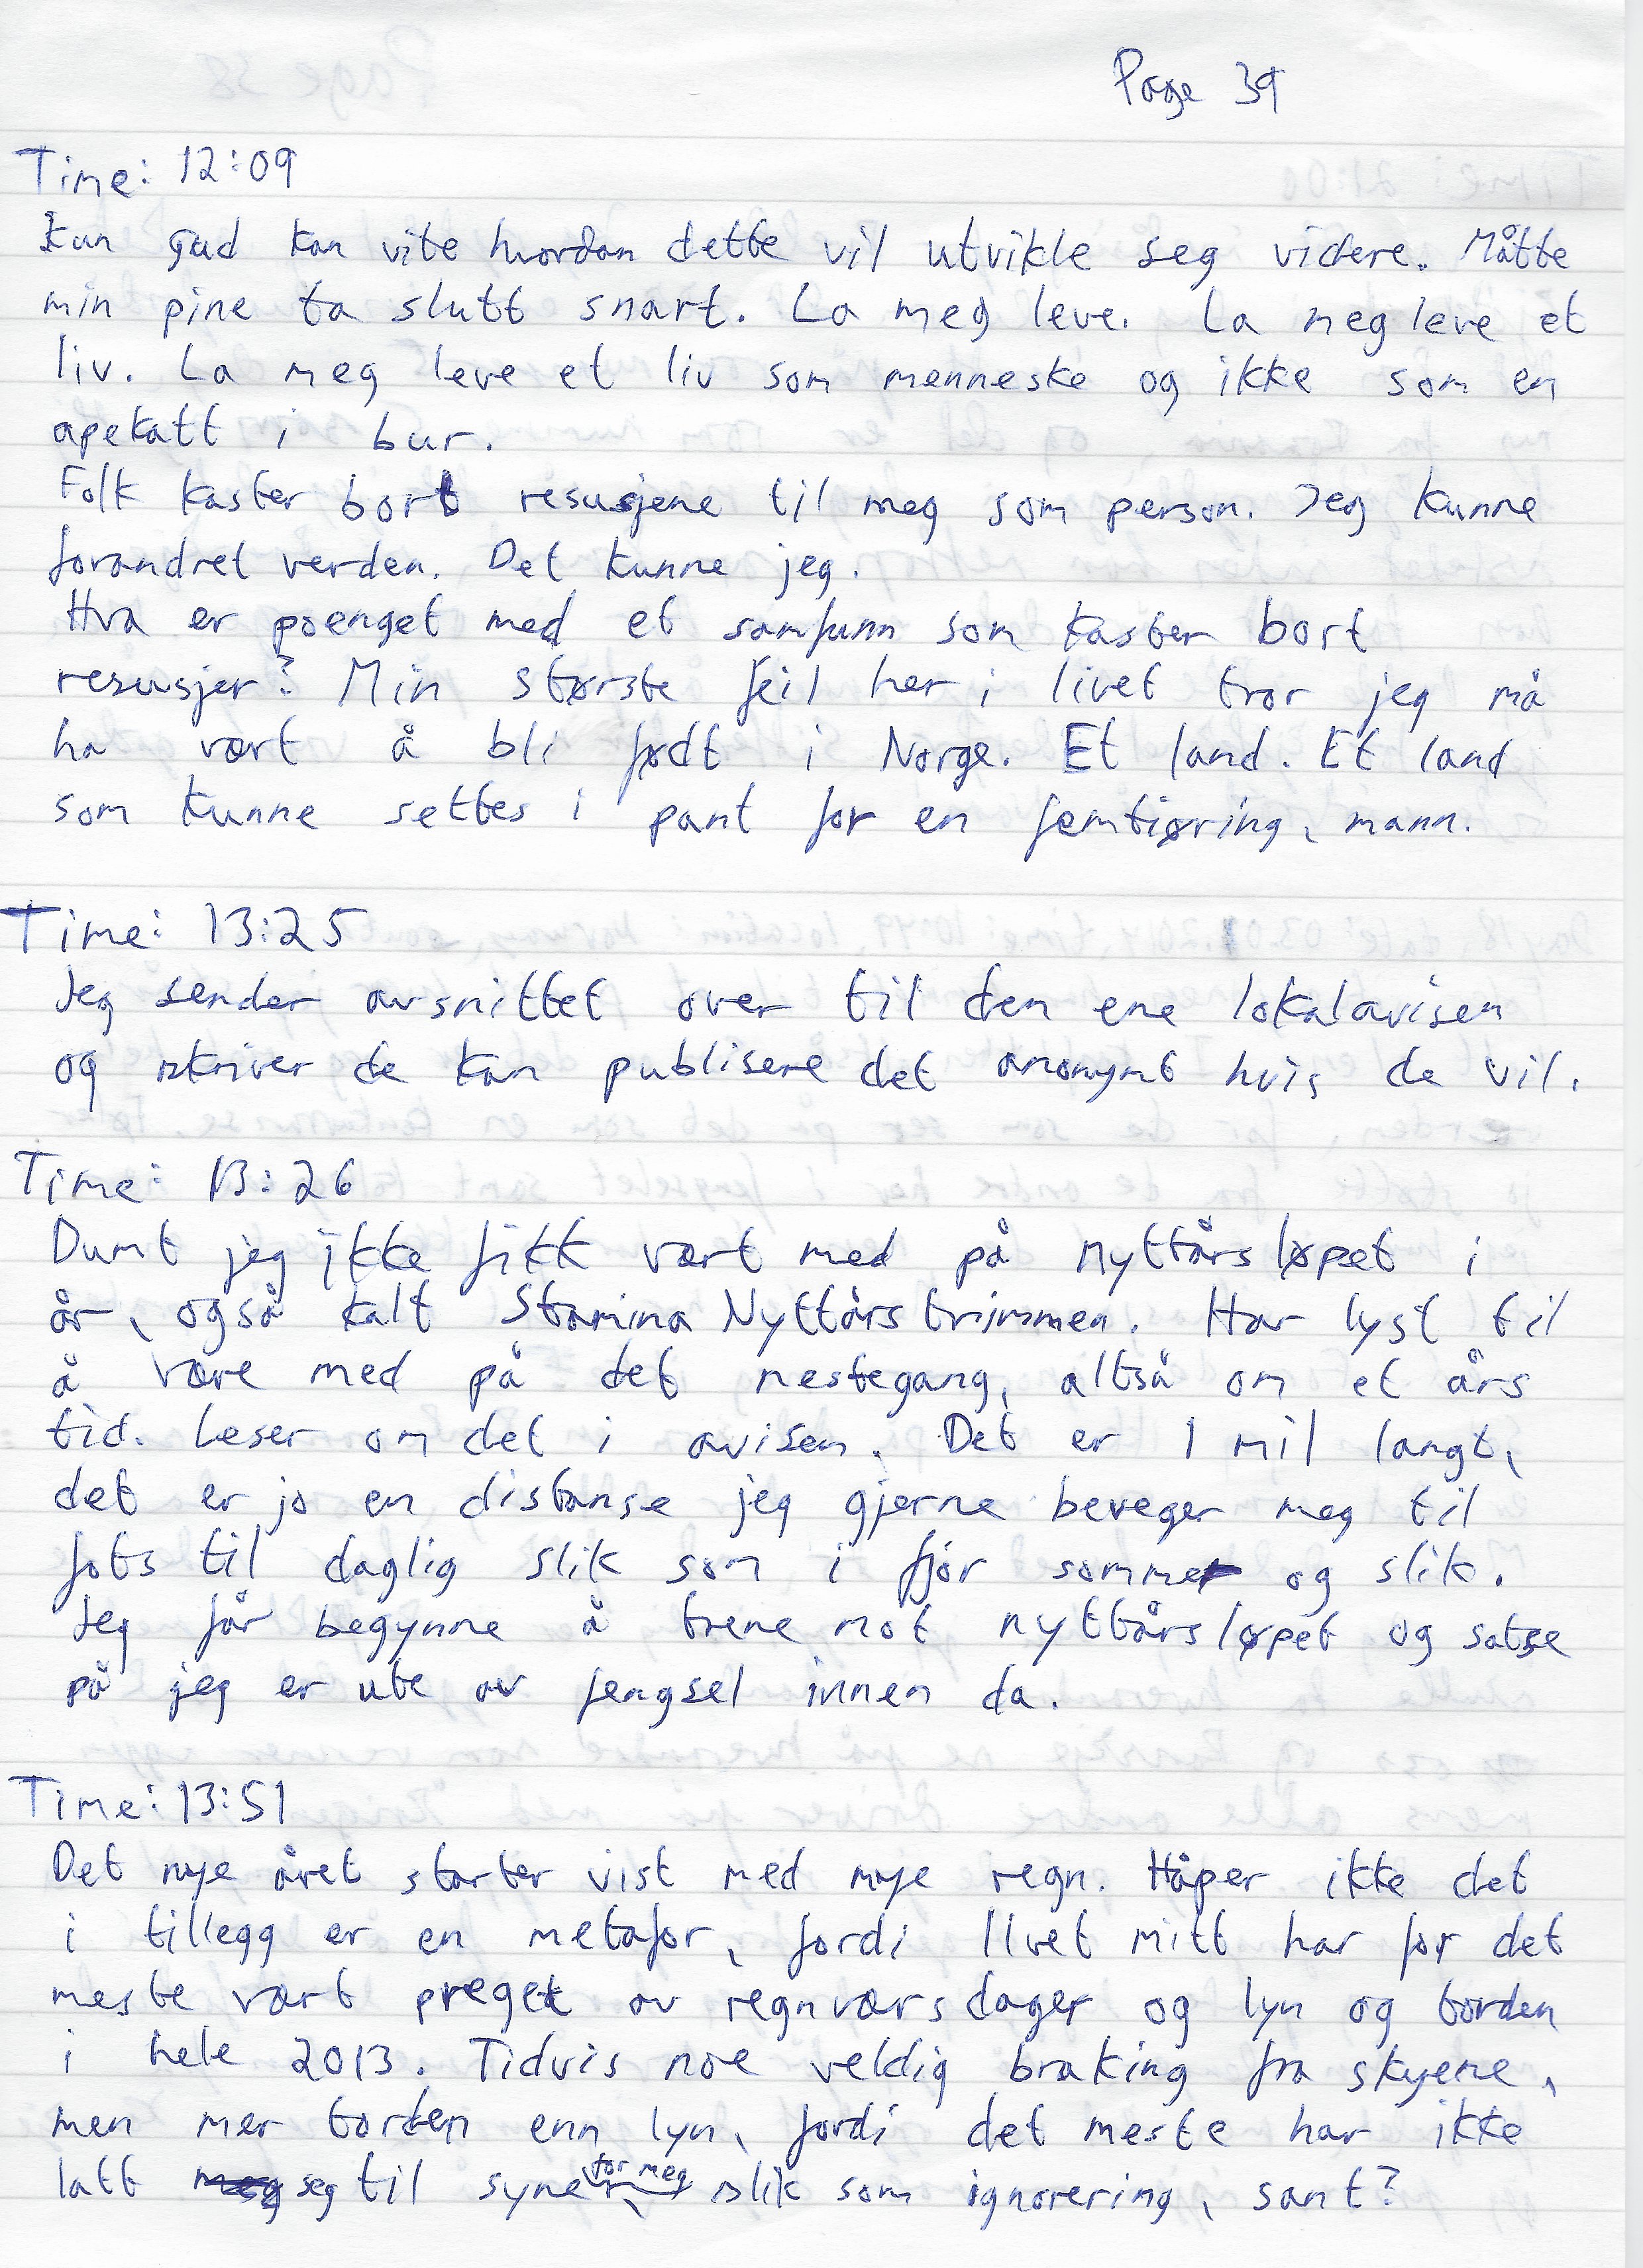 Page 39
Time: 12:09
Kun gud kan vite hvordan dette vil utvikle seg videre. Måtte
min pine ta slutt snart. La meg leve. La meg leve et
liv. La meg leve et liv som menneske og ikke som en
apekatt i bur.
Folk kaster bort resusjene til meg som person. Jeg kunne
forandret verden. Det kunne jeg.
Hva er poenget med et samfunn som kaster bort
resusjer? Min største feil her i livet tror jeg må
ha vært å bli født i Norge. Et land. Et land
som kunne settes i pant for en femtiøring, mann.
Time: 13:25
Jeg sender avsnittet over til den ene lokalavisen
og skriver de kan publisere det anonymt hvis de vil.
Time: 13:26
Dumt jeg ikke fikk vært med på nyttårsløpet i
år, også kalt Stamina Nyttårstrimmen. Har lyst til
å være med på det nestegang, altså om et års
tid. Leser om det i avisen. Det er 1 mil langt,
det er jo en distanse jeg gjerne beveger meg til
fots til daglig slik som i fjor sommer og slik.
Jeg får begynne å trene mot nyttårsløpet og satse
på jeg er ute av fengsel innen da.
Time: 13:51
Det nye året starter vist med mye regn. Håper ikke det
i tillegg er en metafor, fordi livet mitt har for det
meste vært preget av regnværsdager og lyn og torden
i hele 2013. Tidvis noe veldig braking fra skyene,
men mer torden enn lyn, fordi det meste har ikke
latt seg til syne for meg, slik som ignorering, sant?